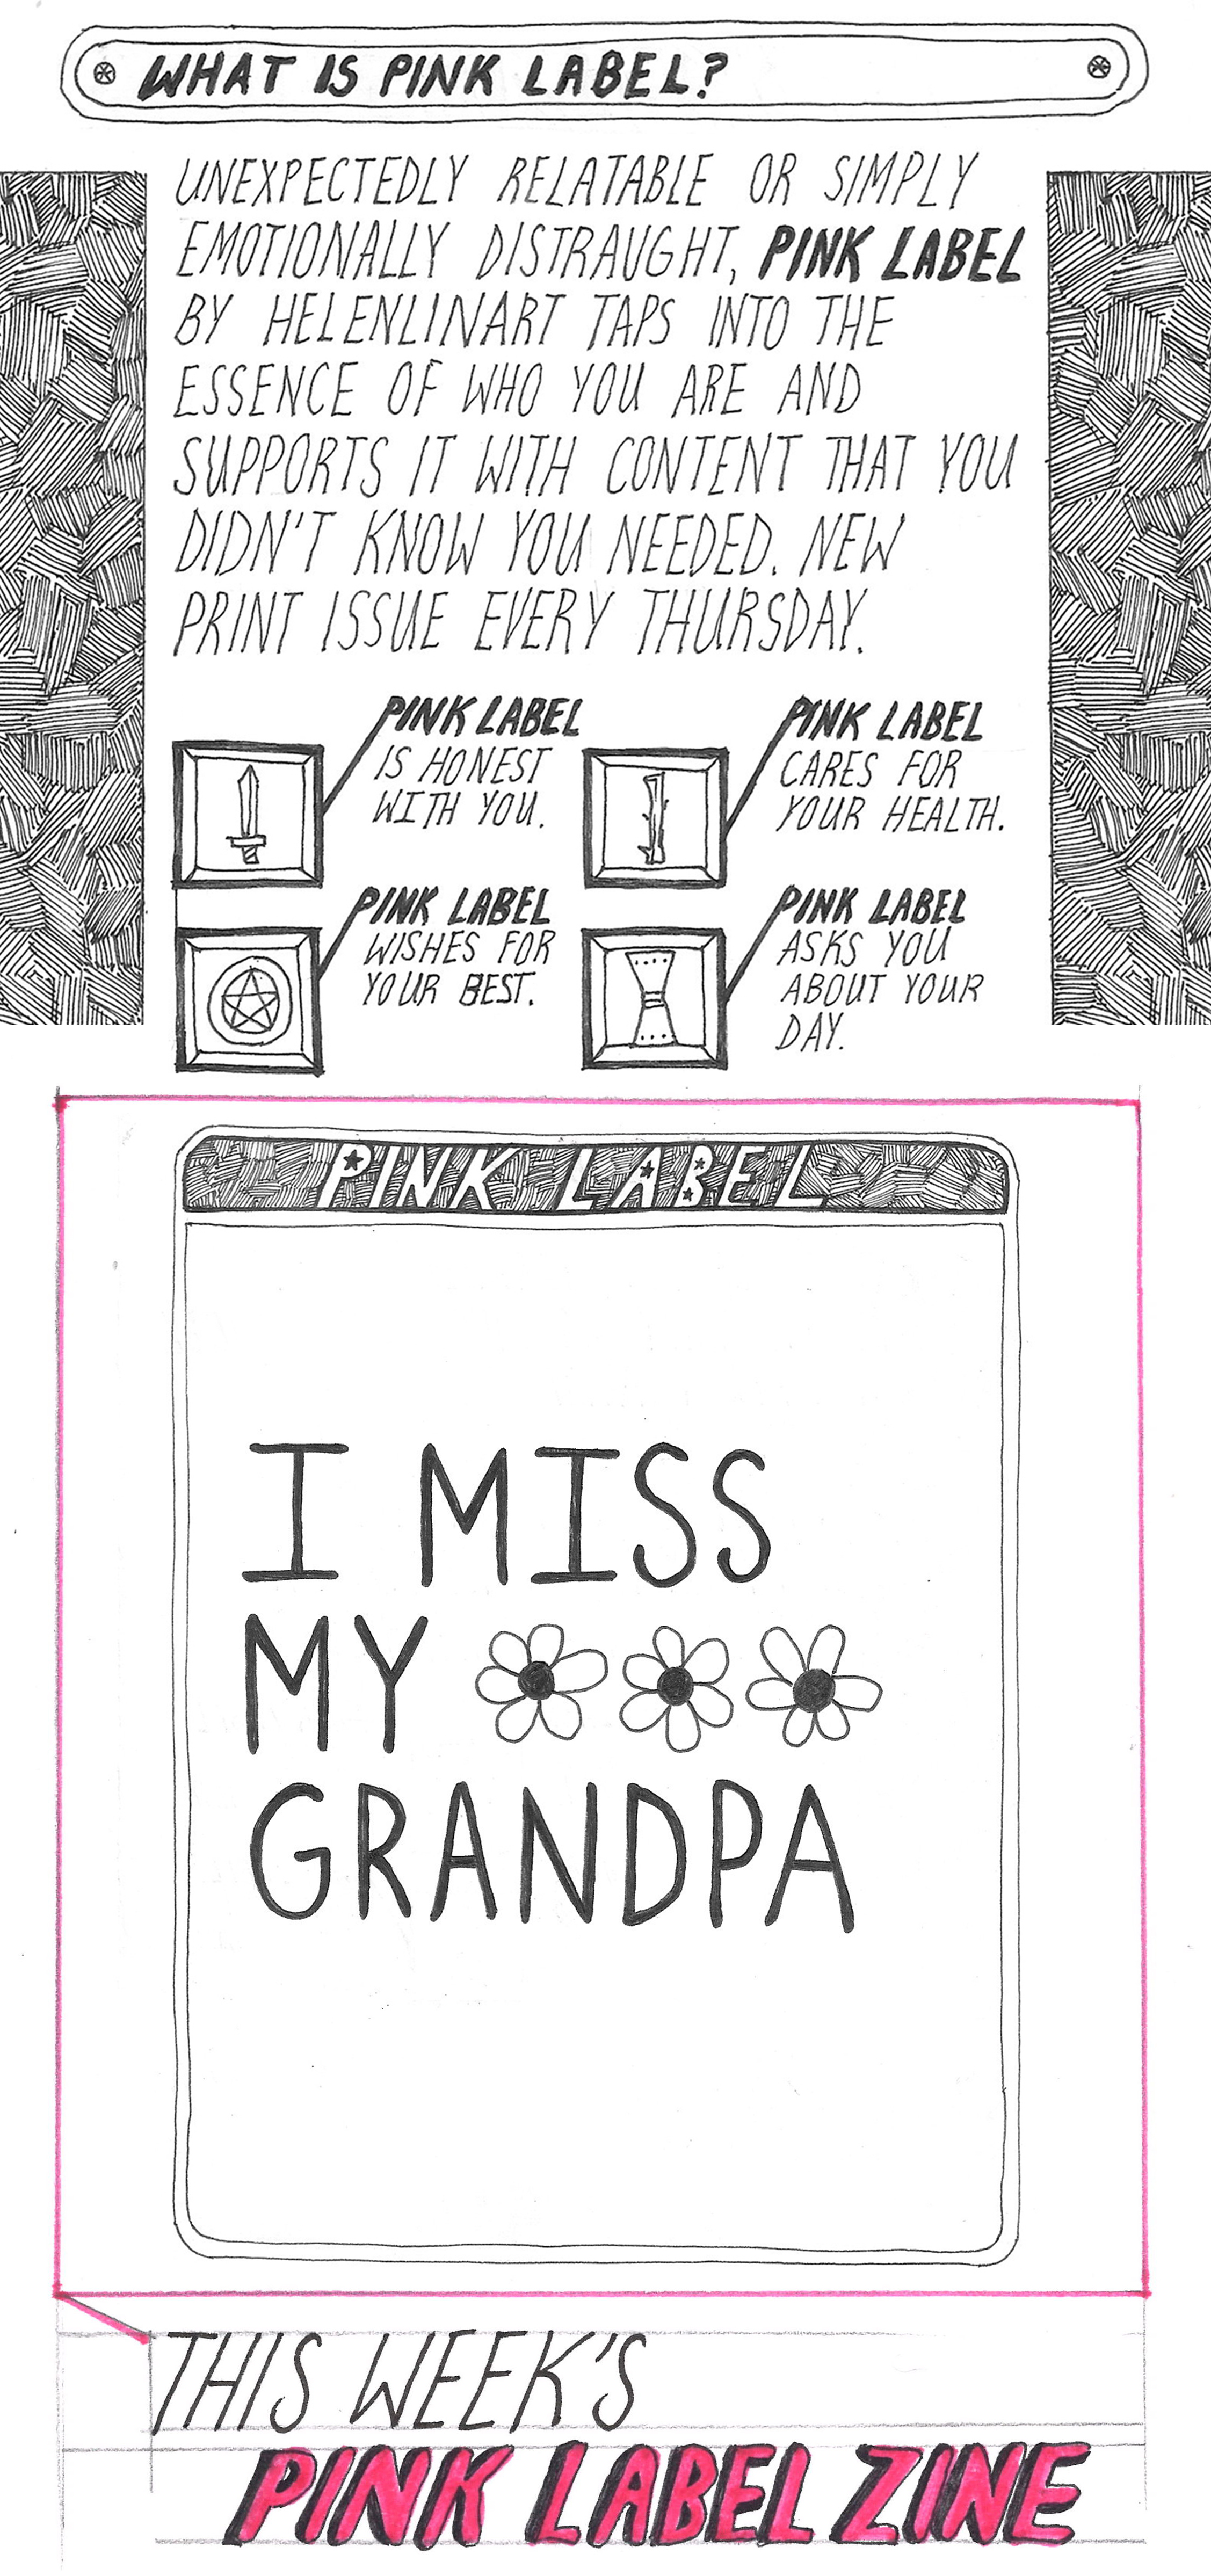 WHAT IS PINK LABEL?
UNEXPECTEDLY RELATABLE OR SIMPLY
EMOTIONALLY DISTRAUGHT, PINK LABEL
BY HELENLINART TAPS INTO THE
ESSENCE OF WHO YOU ARE AND
SUPPORTS IT WITH CONTENT THAT YOU
DIDN'T KNOW YOU NEEDED. NEW
PRINT ISSUE EVERY THURSDAY.
PINK LABEL
IS HONEST
WITH YOU.
PINK LABEL
CARES FOR
YOUR HEALTH.
PINK LABEL
WISHES FOR
YOUR BEST.
PINK LABEL
ASKS YOU
ABOUT YOUR
DAY.
PINK LABEL
I MISS
MY
GRANDPA
THIS WEEK'S
PINK LABEL ZINE